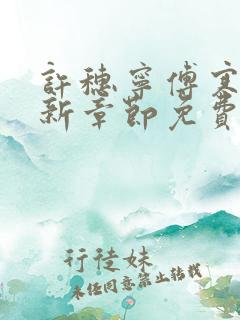 許穗寧傅寒
新章節免費
行徒妹
未經同意禁止轉載